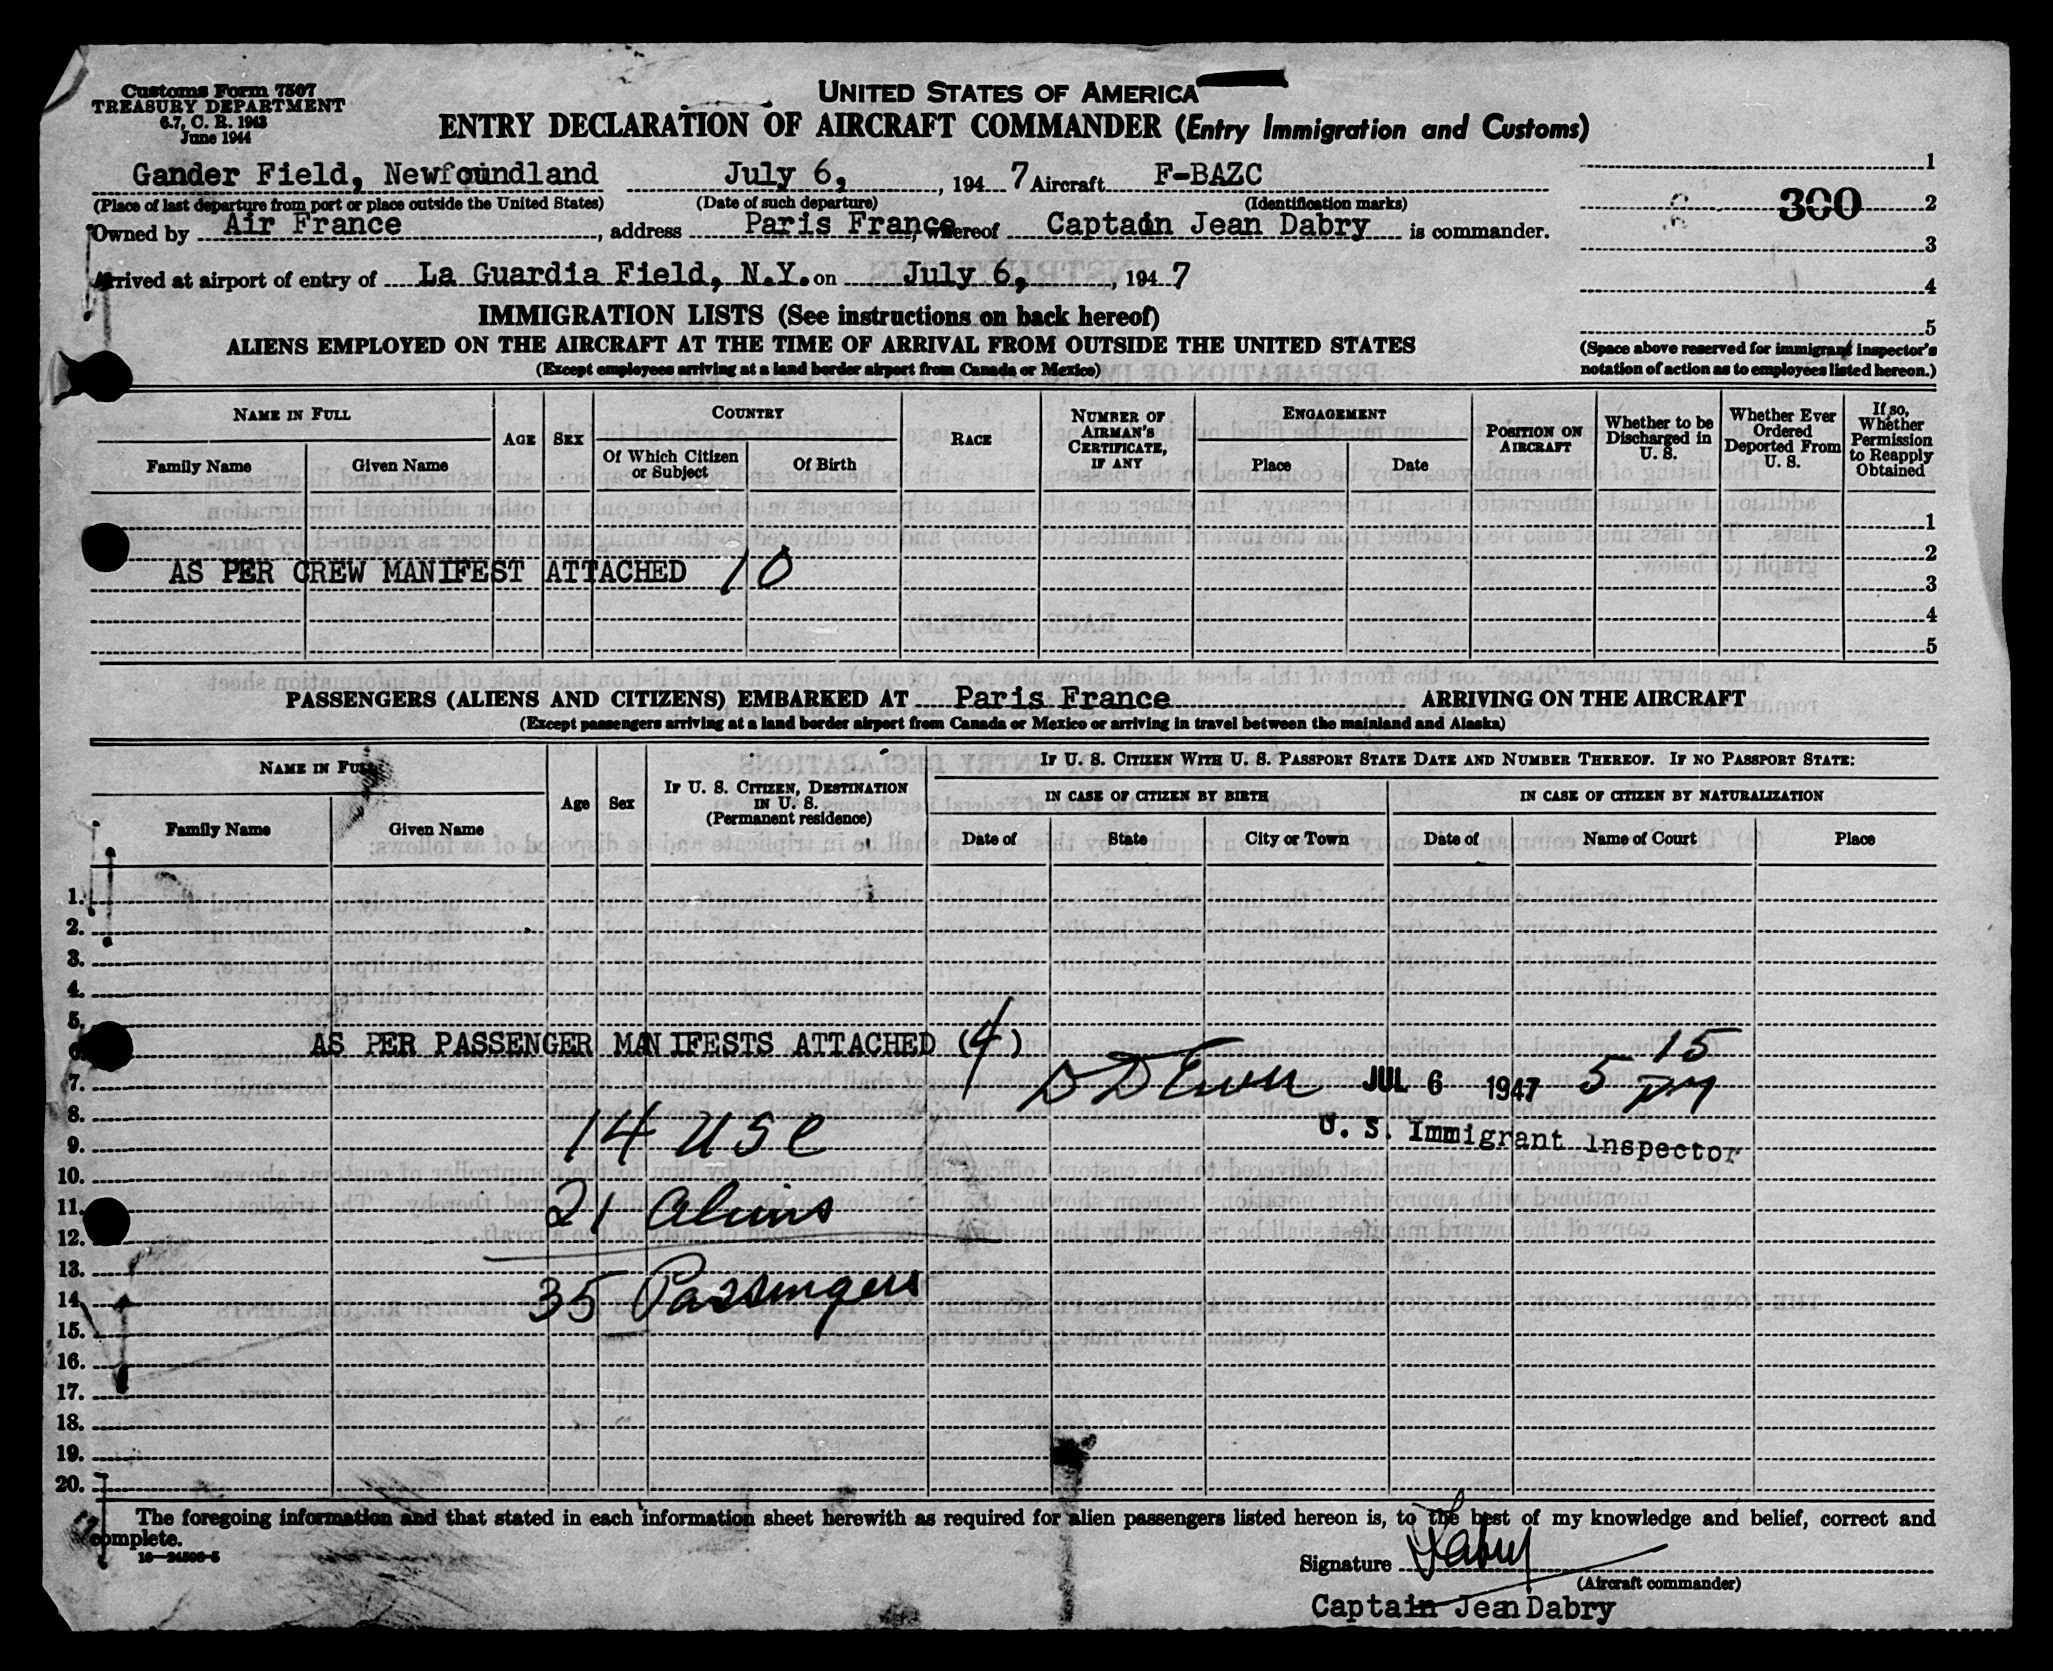 Customs Form 7507
TREASURY DEPARTMENT
6.7, C. R. 1943
June 1944
UNITED STATES OF AMERICA
ENTRY DECLARATION OF AIRCRAFT COMMANDER (Entry Immigration and Customs)
Gander Field, Newfoundland July 6, , 194 7 Aircraft F-BAZC
(Place of last departure from port or place outside the United States) (Date of such departure) (Identification marks)
Owned by Air France , address Paris France, whereof Captain Jean Dabry is commander.
Arrived at airport of entry of La Guardia Field, N.Y. on July 6, , 194 7
1
300 2
3
4
5
(Space above reserved for immigrant inspector's
notation of action as to employees listed hereon.)
IMMIGRATION LISTS (See instructions on back hereof)
ALIENS EMPLOYED ON THE AIRCRAFT AT THE TIME OF ARRIVAL FROM OUTSIDE THE UNITED STATES
(Except employees arriving at a land border airport from Canada or Mexico)
NAME IN FULL
Family Name
Given Name
AGE
SEX
COUNTRY
Of Which Citizen
or Subject
Of Birth
RACE
NUMBER OF
AIRMAN'S
CERTIFICATE,
IF ANY
ENGAGEMENT
Place
Date
POSITION ON
AIRCRAFT
Whether to be
Discharged in
U. S.
Whether Ever
Ordered
Deported From
U. S.
If so,
Whether
Permission
to Reapply
Obtained
1
2
AS PER CREW MANIFEST ATTACHED 10
3
4
5
PASSENGERS (ALIENS AND CITIZENS) EMBARKED AT Paris France ARRIVING ON THE AIRCRAFT
(Except passengers arriving at a land border airport from Canada or Mexico or arriving in travel between the mainland and Alaska)
NAME IN FULL
Family Name
Given Name
Age
Sex
IF U. S. CITIZEN, DESTINATION
IN U. S.
(Permanent residence)
IF U. S. CITIZEN WITH U. S. PASSPORT STATE DATE AND NUMBER THEREOF. IF NO PASSPORT STATE:
IN CASE OF CITIZEN BY BIRTH
IN CASE OF CITIZEN BY NATURALIZATION
Date of
State
City or Town
Date of
Name of Court
Place
1.
2.
3.
4.
5.
6. AS PER PASSENGER MANIFESTS ATTACHED (4)
7. JUL 6 1947 5 15 PM
8.
U. S. Immigrant Inspector
9. 14 USC
10.
11. 21 Aliens
12.
13.
14. 35 Passengers
15.
16.
17.
18.
19.
20.
The foregoing information and that stated in each information sheet herewith as required for alien passengers listed hereon is, to the best of my knowledge and belief, correct and
complete.
16—24506-5
Signature Dabry
(Aircraft commander)
Captain Jean Dabry